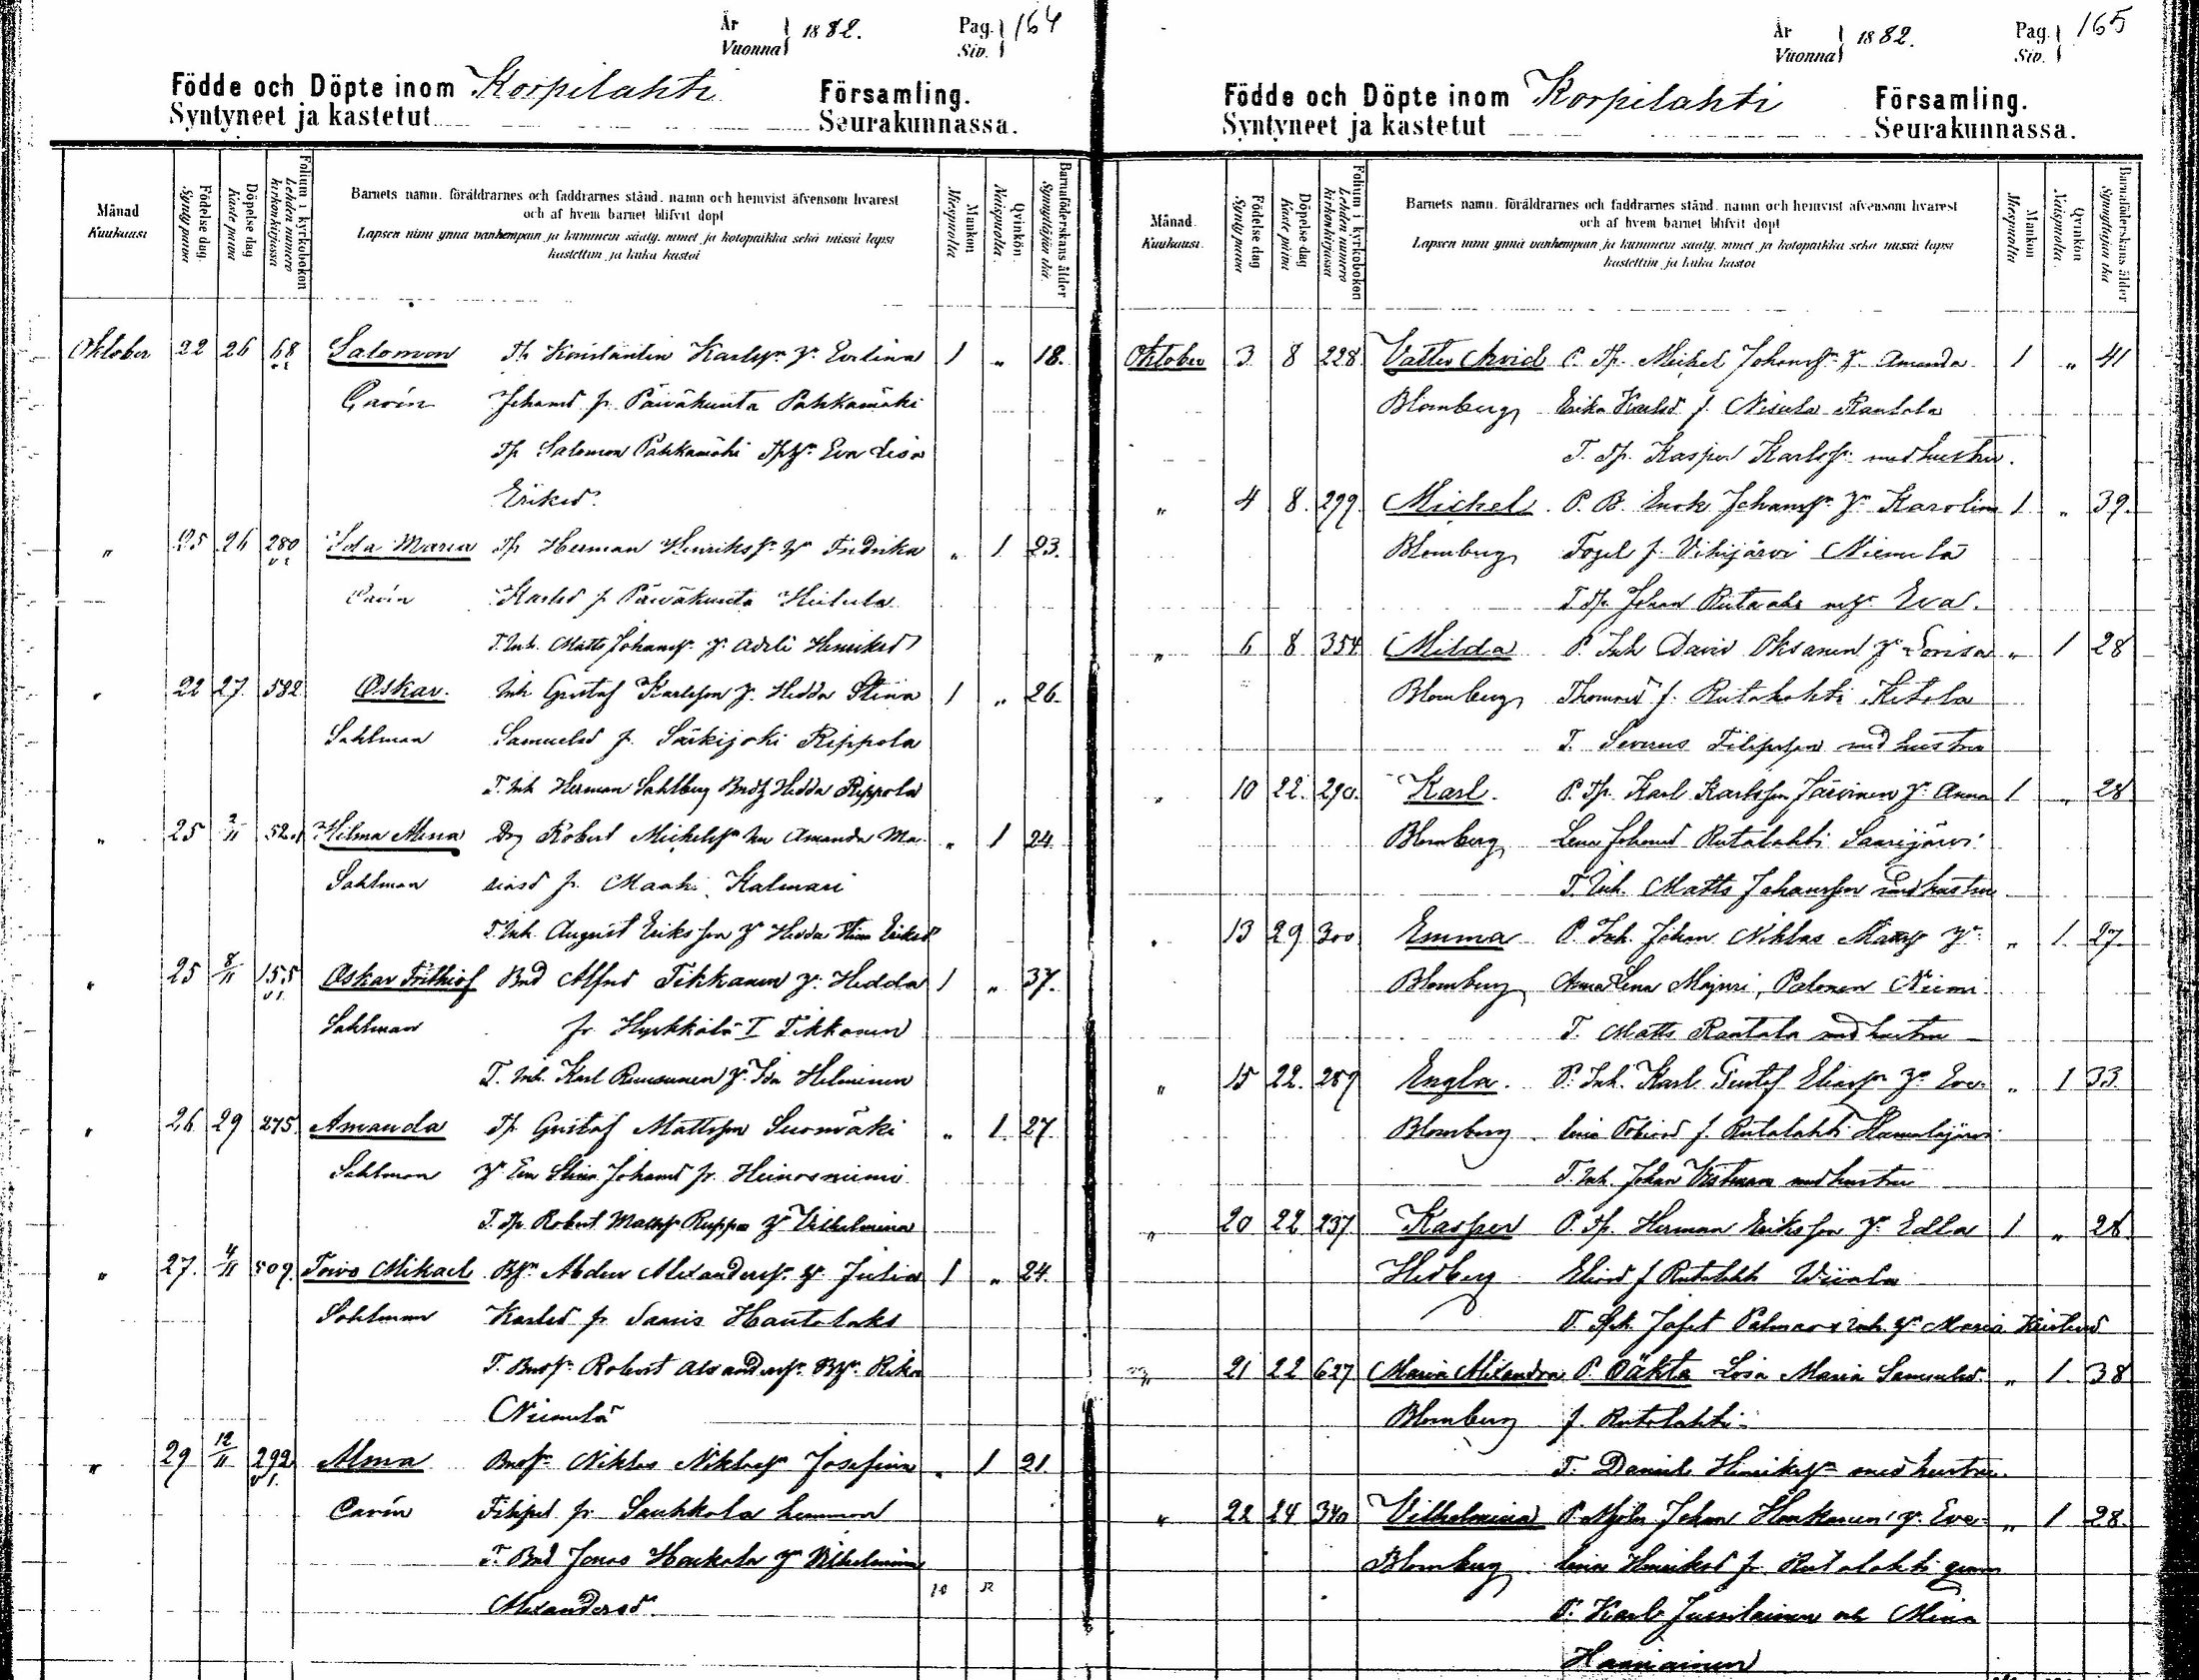 År
Vuonna
1882.
Pag.
Siv.
164
Födde och Döpte inom Korpilahti Församling.
Syntyneet ja kastetut Seurakunnassa.
Månad
Kuukausi
Födelse dag.
Synty paiva
Döpelse dag
Kaste paiva
Folium i kyrkoboken
Lehden numero kirkonkirjassa
Barnets namn. föräldrarnes och faddrarnes stånd. namn och hemvist äfvensom hvarest
och af hvem barnet blifvit döpt
Lapsen nimi ynna vanhempain ja kummein sääty. nimet ja kotopaikka sekä missä lapsi
kastettiin ja kuka kastoi
Mankön
Miespuolta
Qvinkön.
Naispuolta.
Barnaföderskans ålder
Synnyttäjän ikä.
Oktober 22 26 68 Salomon Th Konstantin Karlss. h. Evelina 1 " 18.
Carín Johansd fr. Päiväkunta Pahkamäki
Th Salomon Pahkamäki Eva Lisa
Eriksd.
" 25 26 280 Ida Maria Th Herman Henrikss. h. Fredrika " 1 23.
Carín Karlsd fr Päiväkunta Heikula
T. Inh. Matts Johanss. h. Adeli Henriksd
" 22 27. 582 Oskar. Inh Gustaf Karlsson h. Hedda Stina 1 " 26.
Sahlman Samuelsd fr. Särkijoki Rippola
T. Inh Herman Sahlberg Hedda Rippola
" 25 2/11 520 Hilma Alina Drg Robert Michelss Amanda Ma- " 1 24
Sahlman riasd fr. Maaki Kalmari
T. Inh. August Eriksson h Hedda Stina Eriksd
" 25 8/11 155 Oskar Frithiof Bnd Alfred Tikkanen h. Hedda 1 " 37.
Sahlman fr Hyrkkälä I Tikkanen
T. Inh. Karl Ruusunen h. Ida Helminen
" 26 29 275. Amanda Th Gustaf Mattsson Suomäki " 1. 27.
Sahlman h Eva Stina Johansd fr. Heinosniemi
T. Th. Robert Matss. Ruppa h Vilhelmina
" 27. 4/11 509. Toivo Mikael Alexanderss. h. Julia 1 " 24.
Sahlman Karlsd fr Saaris Hautalaks
T. Robert Alexanderss. Rika
Niemelä
" 29 12/11 292 Alma Niklas Niklass. Josefina " 1 21.
Carín fr. Saukkola hemman
T. Bnd Jonas h Vilhelmina
Alexandersd.
10 12
År
Vuonna
1882.
Pag.
Siv.
165
Födde och Döpte inom Korpilahti Församling.
Syntyneet ja kastetut Seurakunnassa.
Månad.
Kuukausi.
Födelse dag
Synty paiva
Döpelse dag
Kaste paiva
Folium i kyrkoboken
Lehden numero kirkonkirjassa
Barnets namn. föräldrarnes och faddrarnes stånd. namn och hemvist äfvensom hvarest
och af hvem barnet blifvit döpt
Lapsen nimi ynna vanhempain ja kummein sääty. nimet ja kotopaikka sekä missä lapsi
kastettiin ja kuka kastoi
Mankön
Miespuolta
Qvinkön
Naispuolta.
Barnaföderskans ålder
Synnyttäjän ikä
Oktober 3 8 228. Valter Arvid P. Th. Michel Johanss. h. Amanda 1 " 41
Blomberg Erika Karlsd. f. Nisula Rantala
T. Th. Kasper Karlss. med hustru.
" 4 8. 299. Michel P. B. Enok Johanss. h. Karolina 1 " 39.
Blomberg Fogel f. Vihijärvi Niemelä
T. Th. Johan Eva.
" 6 8 354 Milda P. Inh David Oksanen h. Lovisa " 1 28
Blomberg Thomasd f. Rutalahti Ketola
T. Severus Filipsson med hustru
" 10 22. 290. Karl. P. Th. Karl Karlsson Järvinen h. Anna 1 " 28
Blomberg Lena Johansd Rutalahti Saarijärvi
T. Inh. Matts Johansson med hustru
" 13 29 300 Emma P. Inh. Johan Niklas h. " 1. 27.
Blomberg Anna Lena Majuri, Palonen Niemi
T. Matts Rantala med hustru
" 15 22. 289 Engla. P. Inh. Karl Gustaf Eliass. h. Eve- " 1 33.
Blomberg lina f. Rutalahti
T. Inh. Johan med hustru
" 20 22 237. Kasper P. Th. Herman Eriksson h. Edla 1 " 28
Hedberg Eliasd f Rutalahti
T. Jafet Palmar Inh. h. Maria
" 21 22 627 Maria Alexandra P. Oäkta Lisa Maria Samuelsd. " 1. 38
Blomberg f. Rutalahti
T. Daniel Henrikss. med hustru.
" 22 24 340 Vilhelmina P. Johan Honkanen h. Eve- " 1 28.
Blomberg lina Henriksd fr. Rutalahti
T. Karl Jussilainen och Mina
Hanniainen